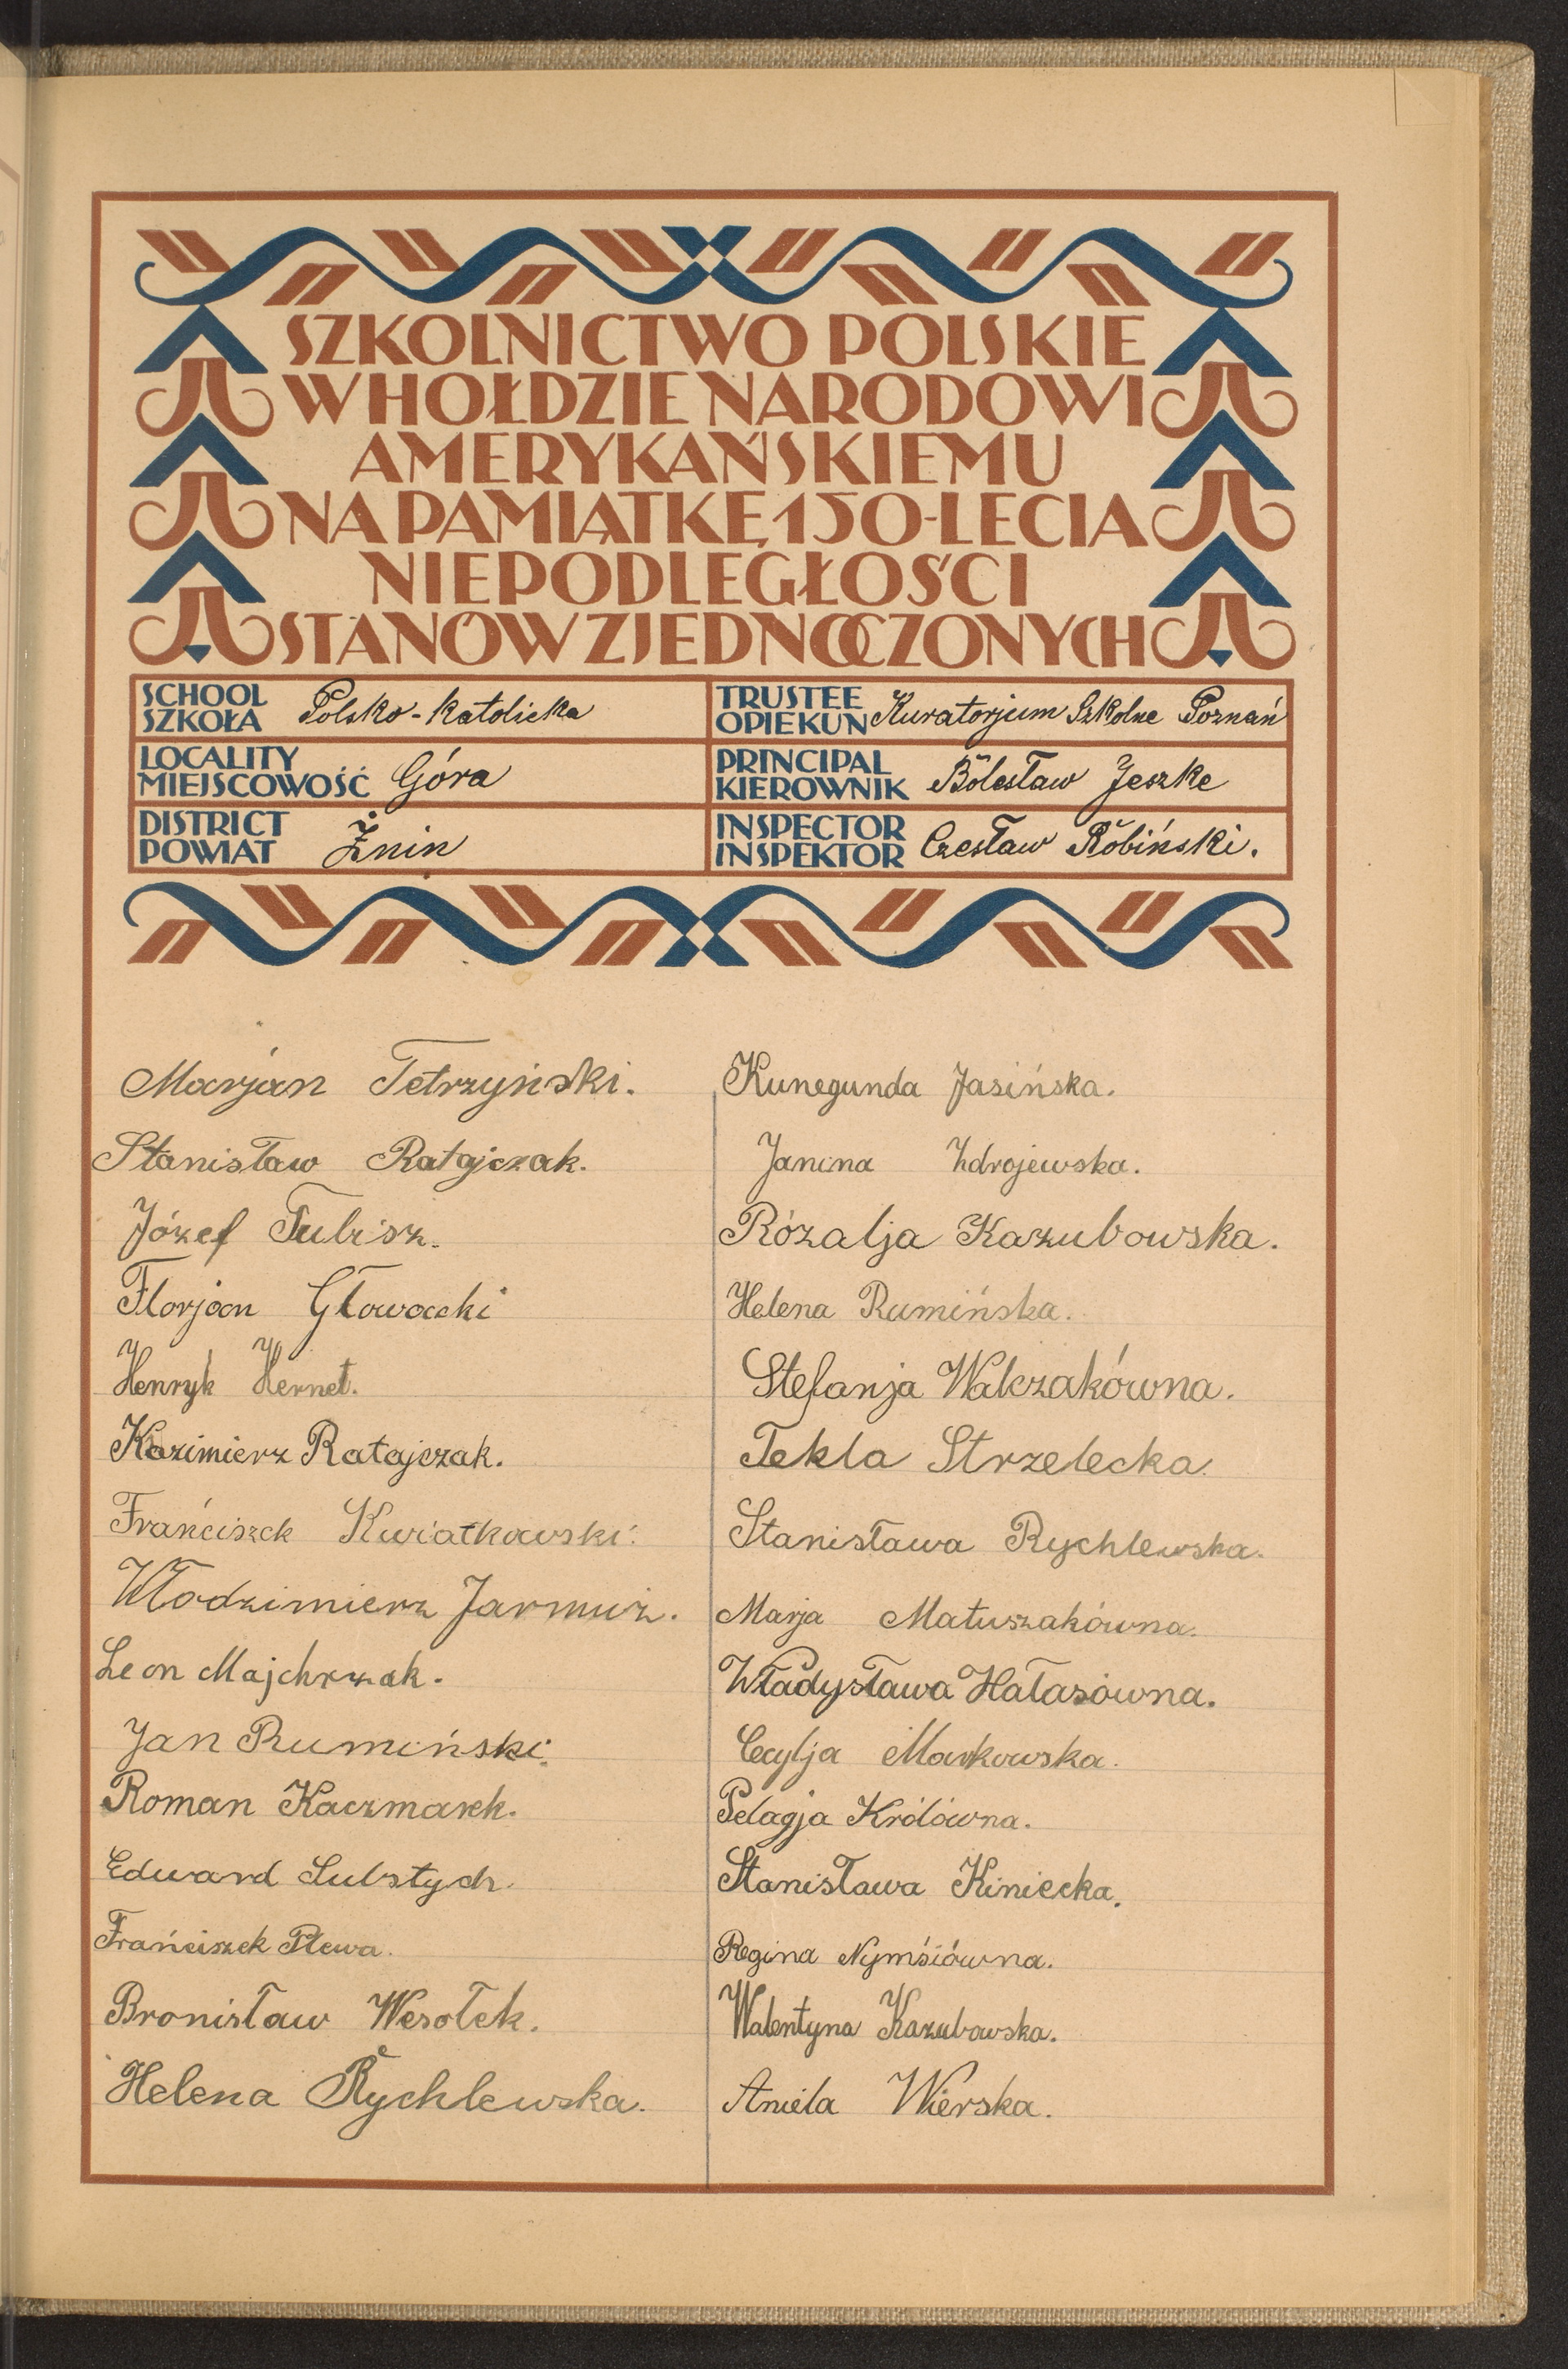 SZKOLNICTWO POLSKIE
W HOŁDZIE NARODOWI
AMERYKAŃSKIEMU
NA PAMIĄTKĘ 150-LECIA
NIEPODLEGŁOŚCI
STANÓW ZJEDNOCZONYCH
SCHOOL
SZKOŁA Polsko-katolicka
TRUSTEE
OPIEKUN Kuratorjum Szkolne Poznań
LOCALITY
MIEJSCOWOŚĆ Góra
PRINCIPAL
KIEROWNIK Bolesław Jeszke
DISTRICT
POWIAT Żnin
INSPECTOR
INSPEKTOR Czesław Robiński.
Marjan Tetrzyński.
Stanisław Ratajczak.
Józef Tubisz.
Florjan Głowacki
Henryk Hernet.
Kazimierz Ratajczak.
Franciszek Kwiatkowski.
Włodzimierz Jarmuż.
Leon Majchrzak.
Jan Rumiński.
Roman Kaczmarek.
Edward Substych.
Frańciszek Plewa.
Bronisław Wesołek.
Helena Rychlewska.
Kunegunda Jasińska.
Janina Zdrojewska.
Rózalja Kazubowska.
Helena Rumińska.
Stefanja Walczakówna.
Tekla Strzelecka.
Stanisława Rychlewska.
Marja Matuszakówna.
Władysława Hałasówna.
Cecylja Markowska.
Pelagja Królówna.
Stanisława Kiniecka.
Regina Nymśiówna.
Walentyna Kazubowska.
Aniela Wierska.